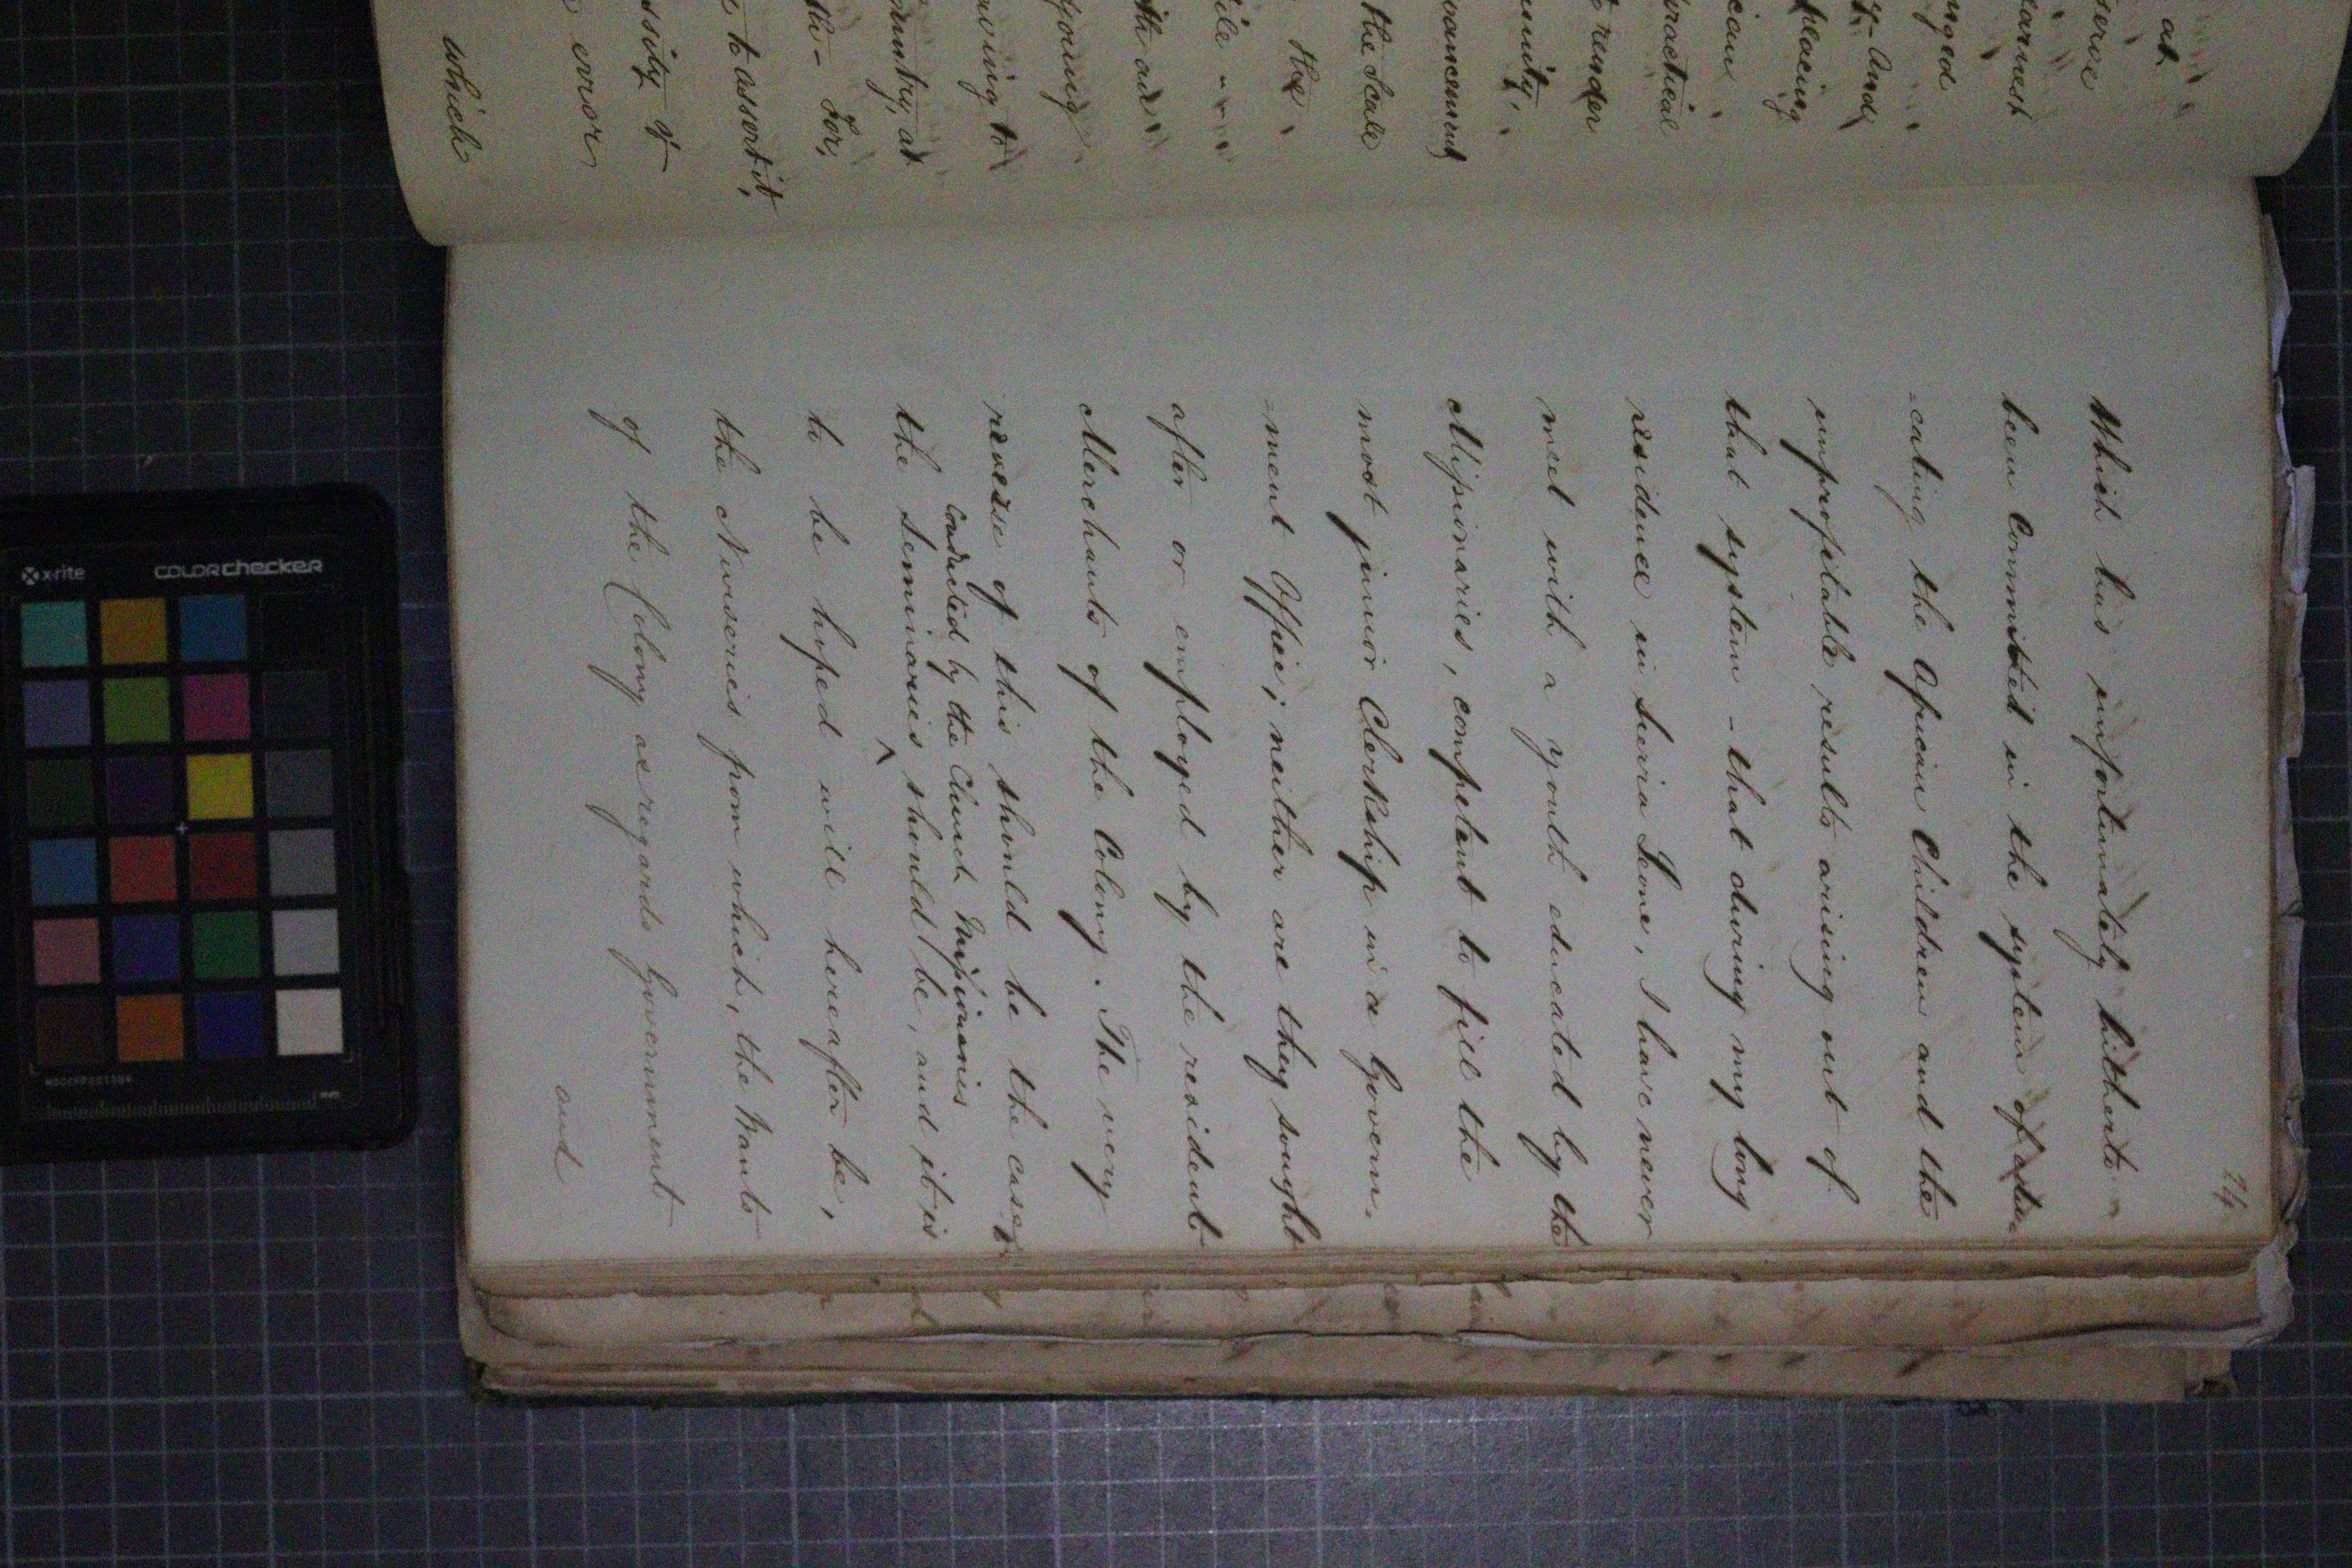 at
serve
earnest
nged
y- And
placing
cian
practical
t render
unity,
vancement
the Scale
the
ile -
ith and
young
owing to
ountry, at
th- For,
e to assert it,
ssity of
error
which
24
Which has unfortunately hitherto
been Committed in the system of edu-
-cating the African Children and the
unprofitable results arising out of
that system - that during my long
residence in Sierra Leone, I have never
met with a youth educated by the
Missionaries, competent to fill the
most junior Clerkship in a Govern-
-ment Office; neither are they sought
after or employed by the resident
Merchants of the Colony. The very
reverse of this should be the case, &
Conducted by the Church Missionaries
the Seminaries ^ should be, and it is
to be hoped will hereafter be,
the Nurseries from which, the Wants
of the Colony as regards Government
and
x-rite
colorchecker